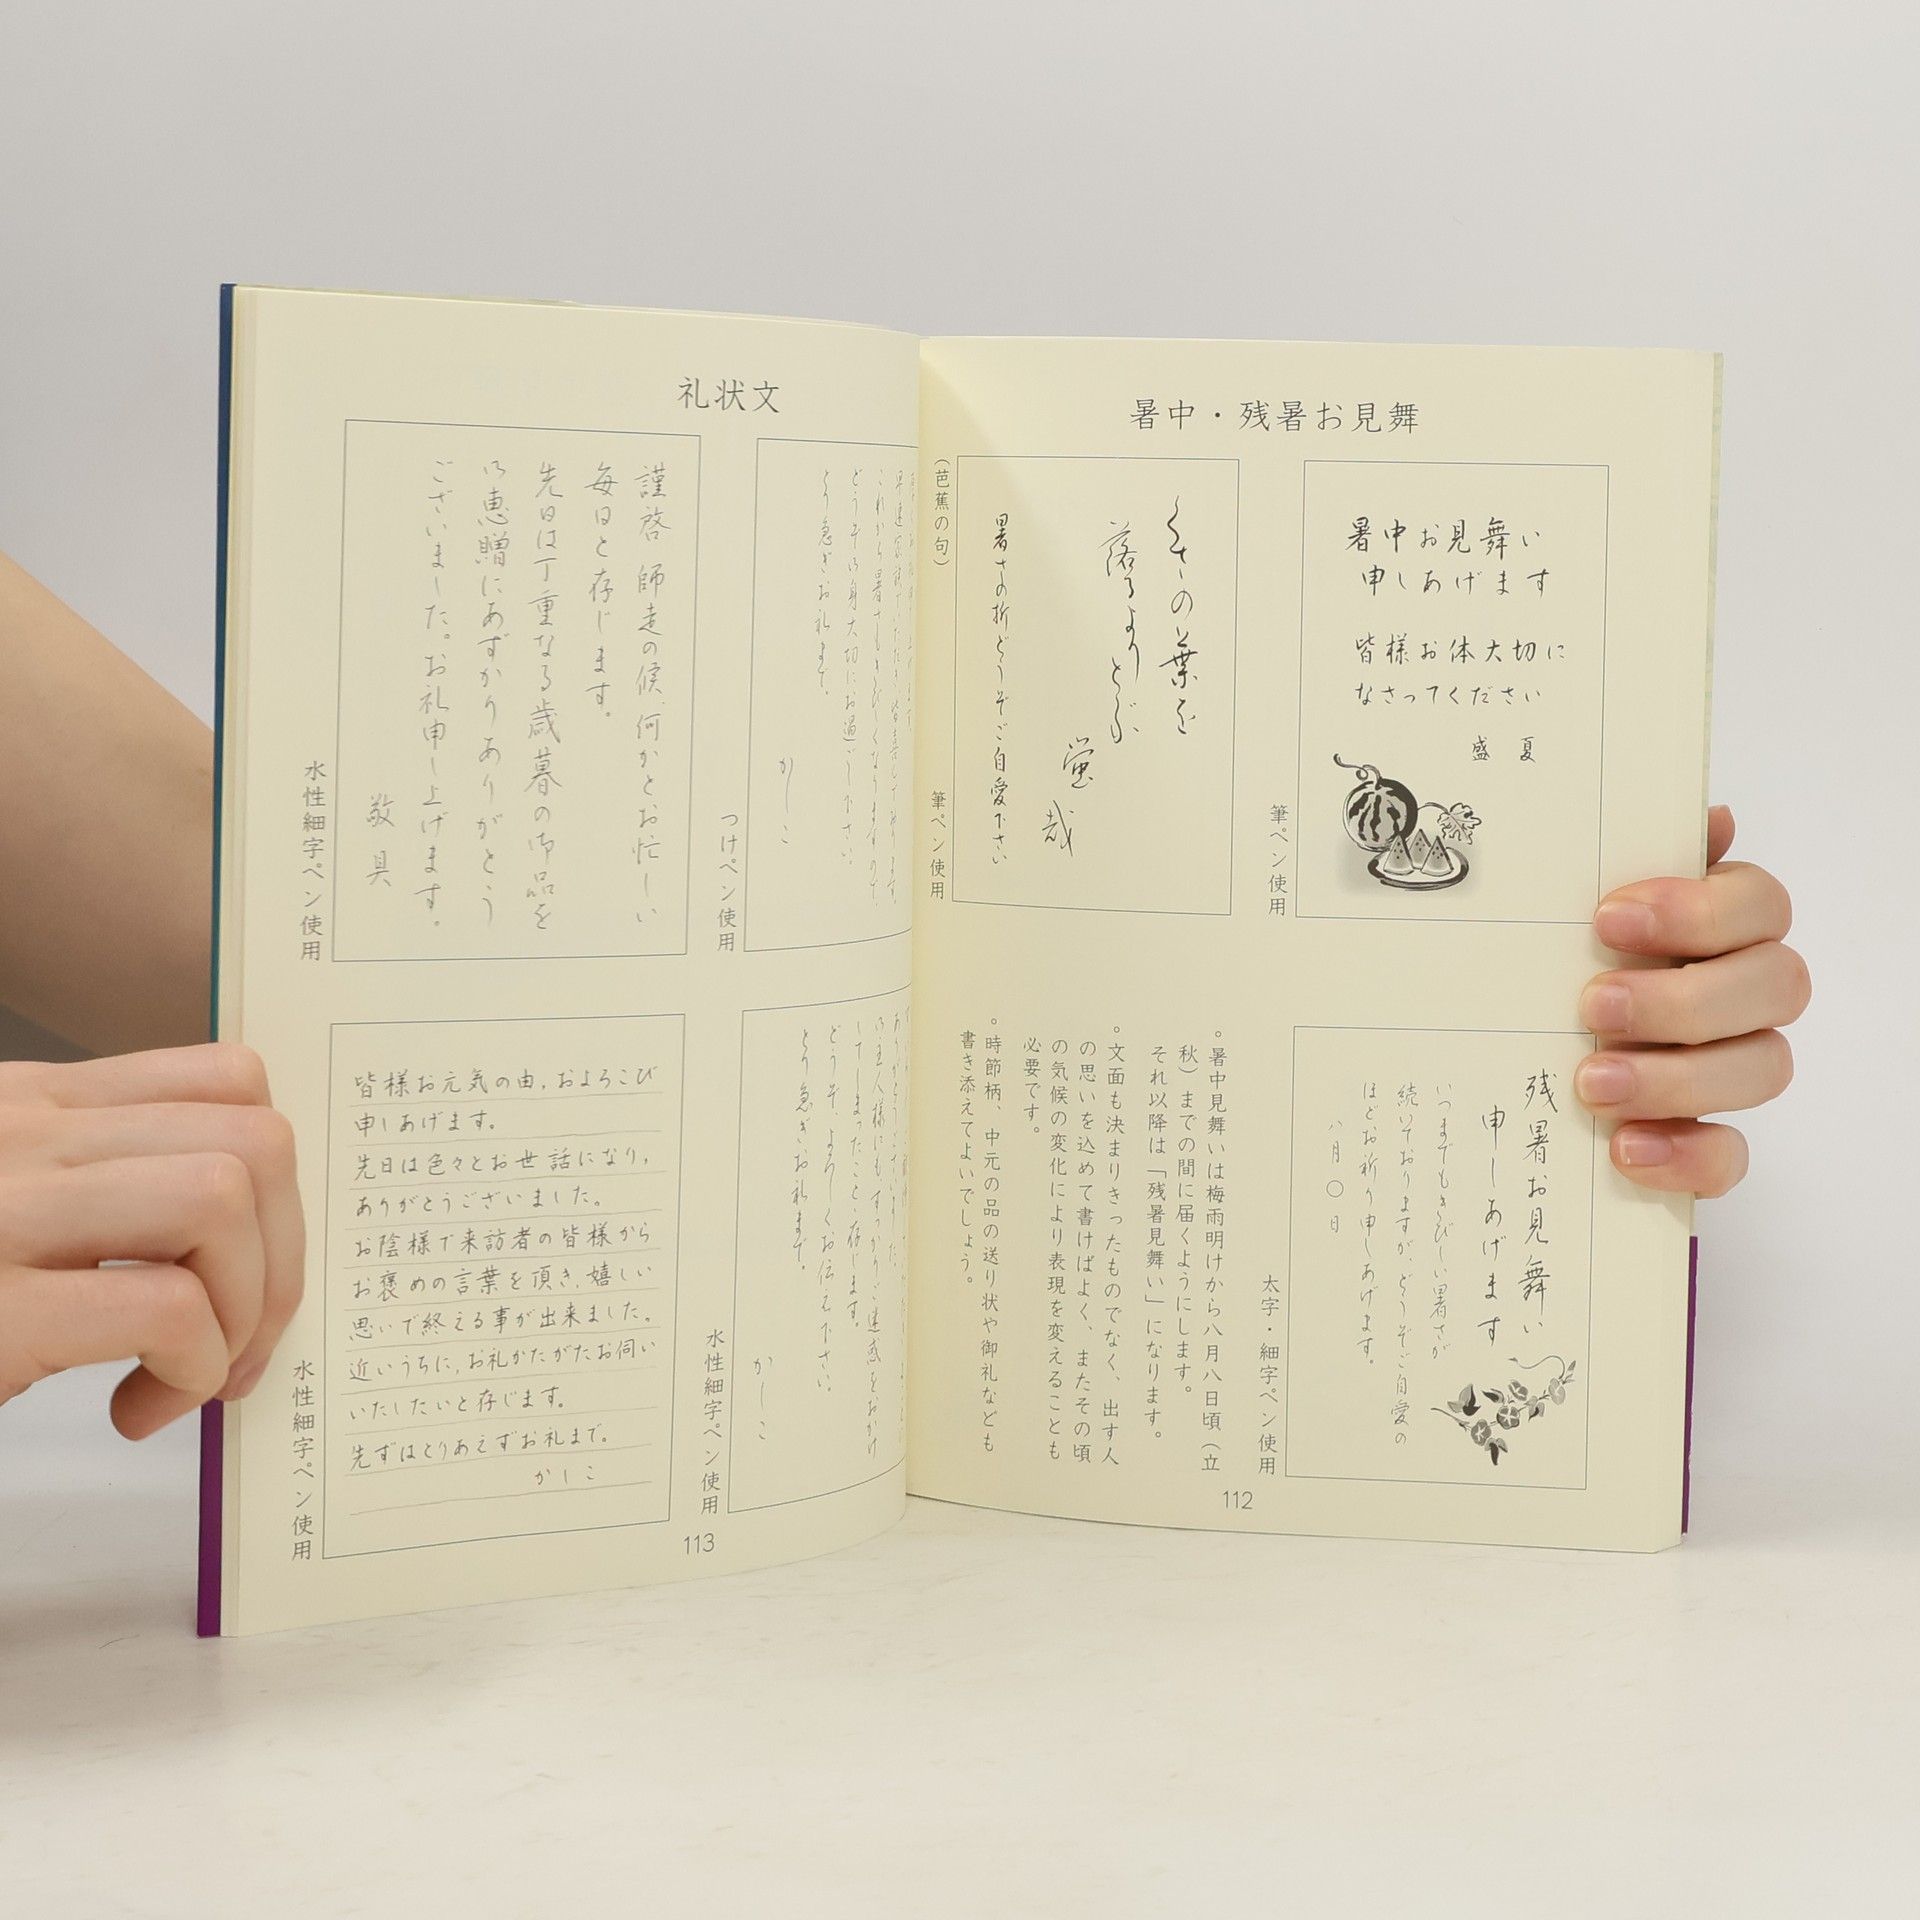 暑中・残暑お見舞
暑中お見舞い
申しあげます
皆様お体大切に
なさってください
盛夏
筆ペン使用
くさの葉を
落るより
とぶ
蛍哉
暑さの折どうぞご自愛下さい
筆ペン使用
(芭蕉の句)
残暑お見舞い
申しあげます
いつまでもきびしい暑さが
続いておりますが、どうぞご自愛の
ほどお祈り申しあげます。
八月〇日
太字・細字ペン使用
。暑中見舞いは梅雨明けから八月八日頃(立
秋)までの間に届くようにします。
それ以降は「残暑見舞い」になります。
。文面も決まりきったものでなく、出す人
の思いを込めて書けばよく、またその頃
の気候の変化により表現を変えることも
必要です。
。時節柄、中元の品の送り状や御礼なども
書き添えてよいでしょう。
112
礼状文
これから暑さもきびしくなりますので
どうぞ御身大切にお過ごし下さい。
とり急ぎお礼まで。
かしこ
つけペン使用
謹啓 師走の候、何かとお忙しい
毎日と存じます。
先日は丁重なる歳暮の御品を
御恵贈にあずかりありがとう
ございました。お礼申し上げます。
敬具
水性細字ペン使用
御主人様にもすっかりご迷惑をおかけ
してしまったことゝ存じます。
どうぞ、よろしくお伝え下さい。
とり急ぎお礼まで。
かしこ
水性細字ペン使用
皆様お元気の由、およろこび
申しあげます。
先日は色々とお世話になり、
ありがとうございました。
お陰様で来訪者の皆様から
お褒めの言葉を頂き、嬉しい
思いで終える事が出来ました。
近いうちに、お礼かたがたお伺い
いたしたいと存じます。
先ずはとりあえずお礼まで。
かしこ
水性細字ペン使用
113